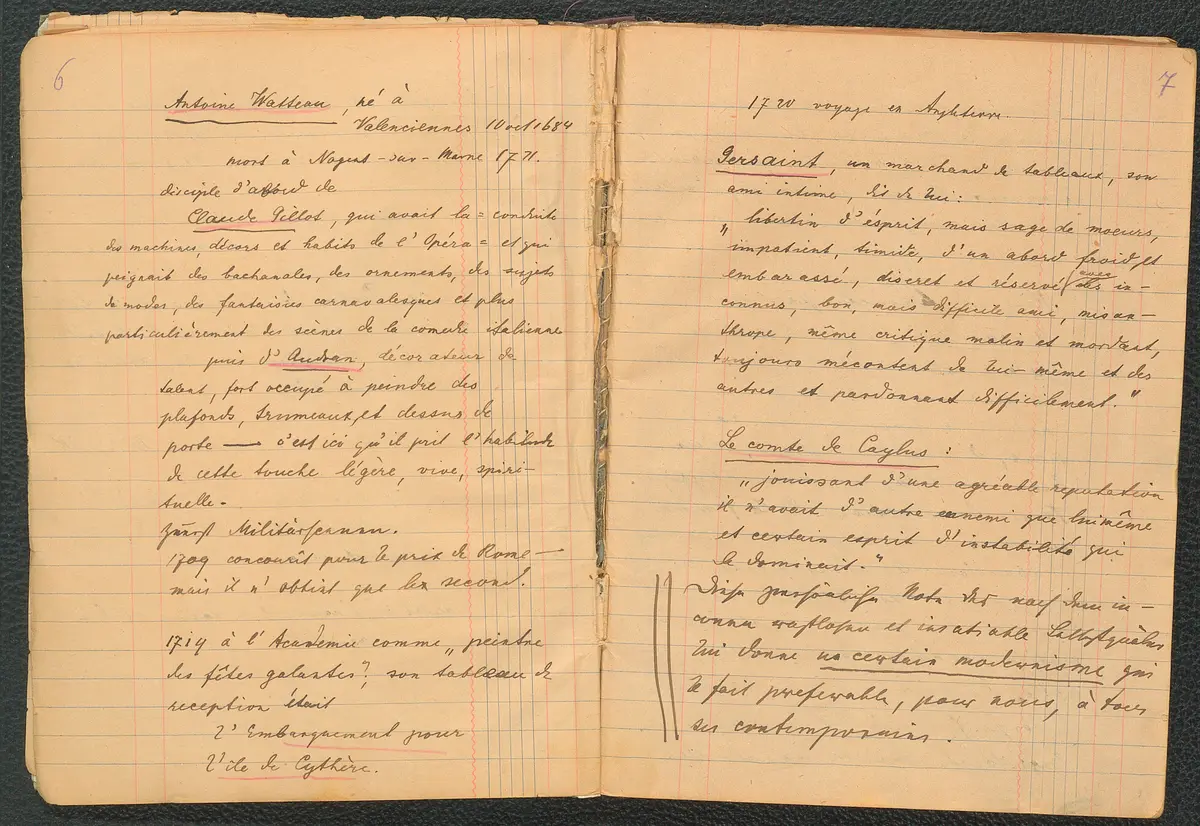 6
Antoine Watteau, né à
Valenciennes 10 oct 1684
mort à Nogent-sur-Marne 1721.
disciple d'abord de
Claude Gillot, qui avait la = conduite
des machines, décors et habits de l'Opéra = et qui
peignait des bachanales, des ornements, des sujets
de modes, des fantaisies carnavalesques et plus
particulièrement des scènes de la comedie italienne
puis d'Audran, décorateur de
talent, fort occupé à peindre des
plafonds, trumeaux, et dessus de
porte — c'est ici qu'il prit l'habitude
de cette touche légère, vive, spiri-
tuelle-
zuerst Militärscenen.
1709 concourît pour le prix de Rome —
mais il n'obtint que le second.
1714 à l'Academie comme „peintre
des fêtes galantes", son tableau de
reception était
L'Embarquement pour
l'île de Cythère.
7
1720 voyage en Angleterre.
Gersaint, un marchand de tableaux, son
ami intime, dit de lui:
„libertin d'ésprit, mais sage de moeurs,
impatient, timide, d'un abord froid et
embarassé, discret et réservé avec des in-
connus, bon, mais difficile ami, misan-
thrope, même critique malin et mordant,
toujours mécontent de lui-même et des
autres et pardonnant difficilement."
Le comte de Caylus:
„jouissant d'une agréable reputation
il n'avait d'autre ennemi que lui même
et certain esprit d'instabilité qui
le dominait."
Diese persönliche Note des nach dem in-
connu rastlosen et insatiable Selbstquälers
lui donne un certain modernisme qui
le fait preferable, pour nous, à tous
ses contemporains.